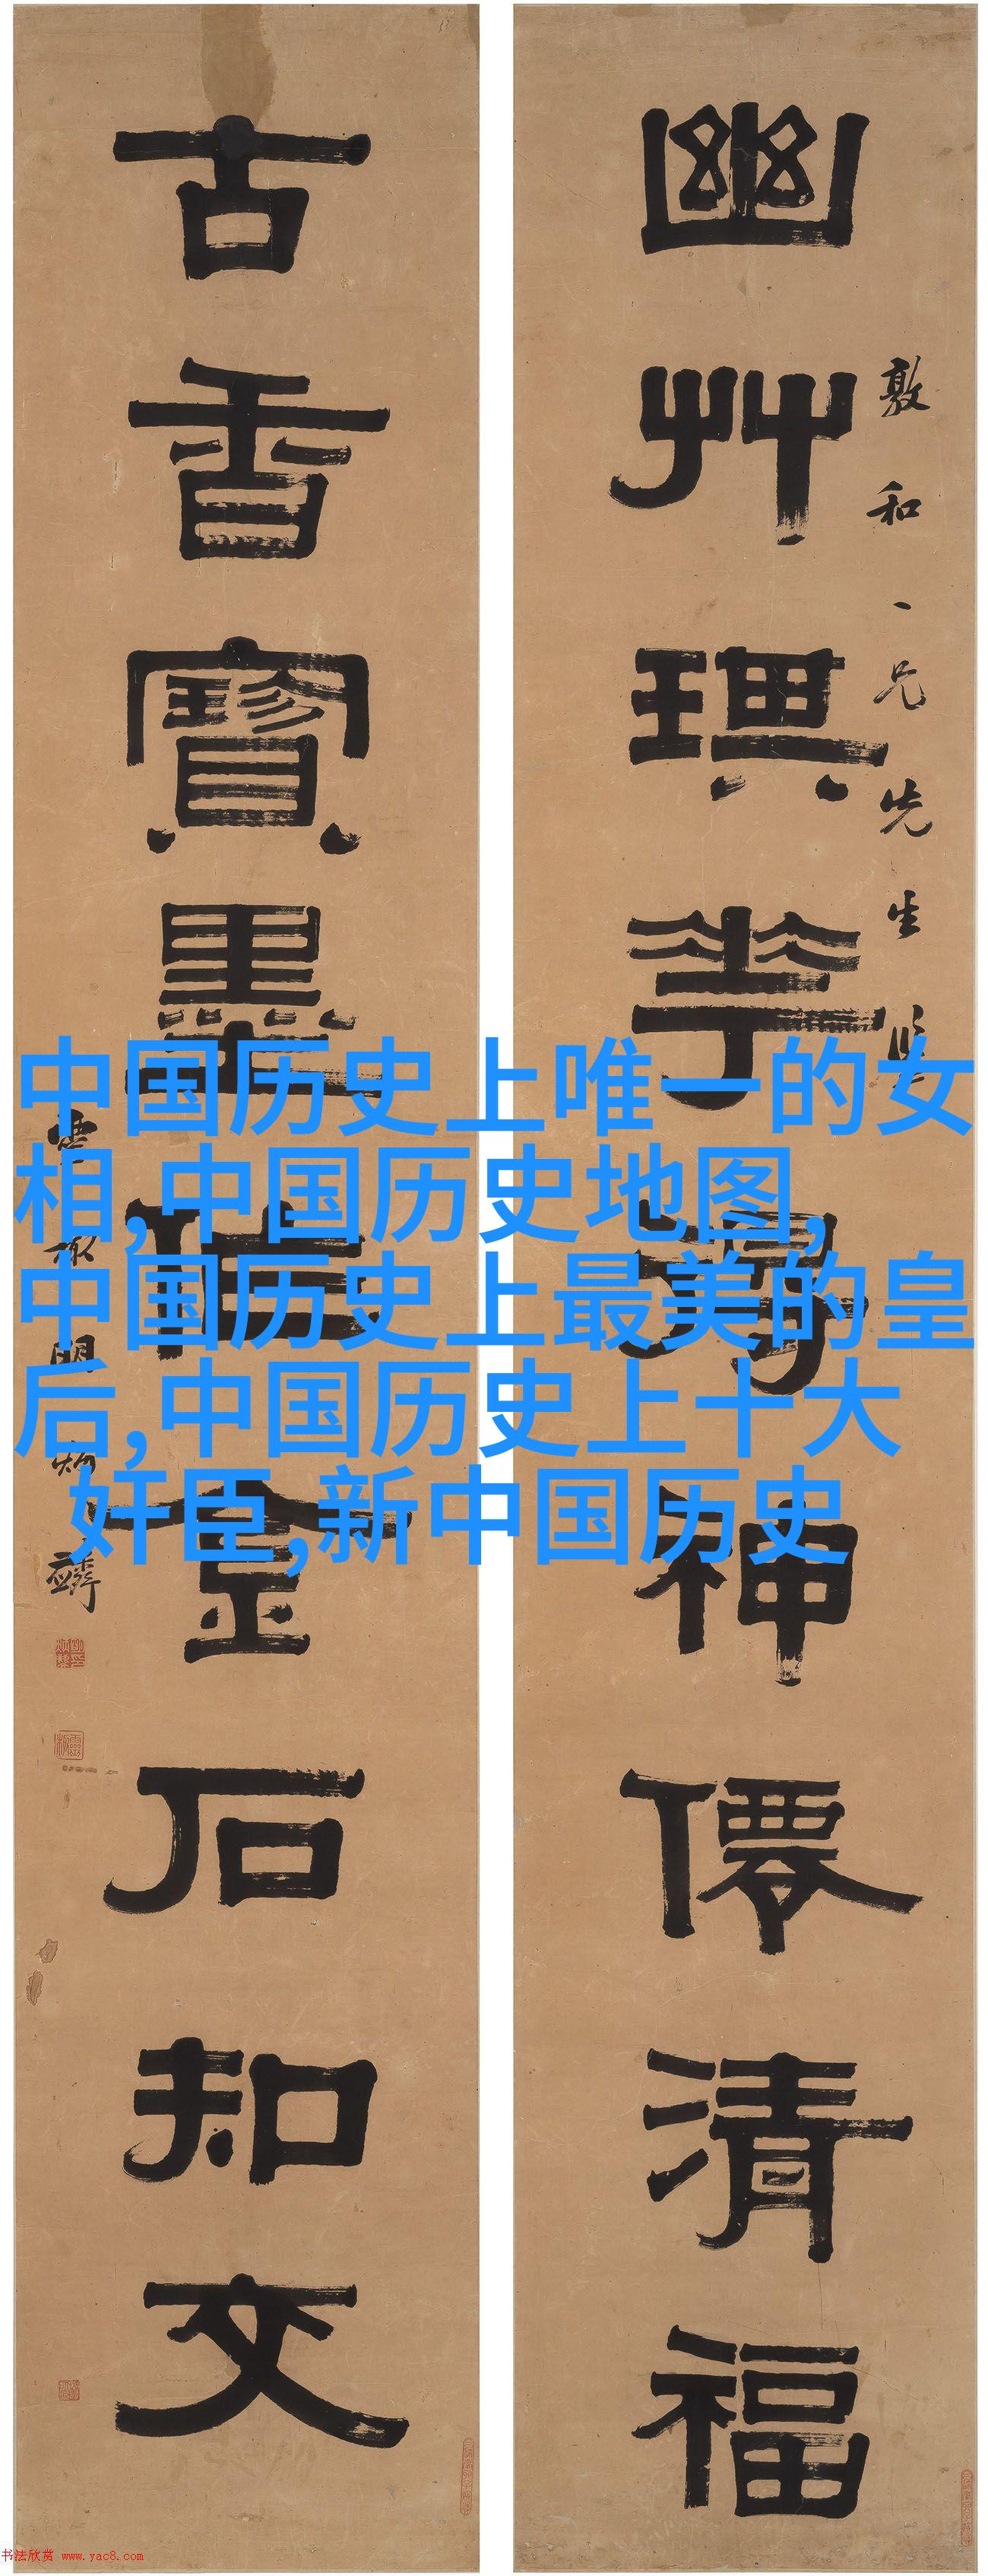 幽艸琪華
神僊清福
敦和一兄先生
古香寶墨
金石知文
中国历史上唯一的女
相,中国历史地图,
中国历史上最美的皇
后,中国历史上十大
奸臣,新中国历史
书法欣赏 www.yac8.com